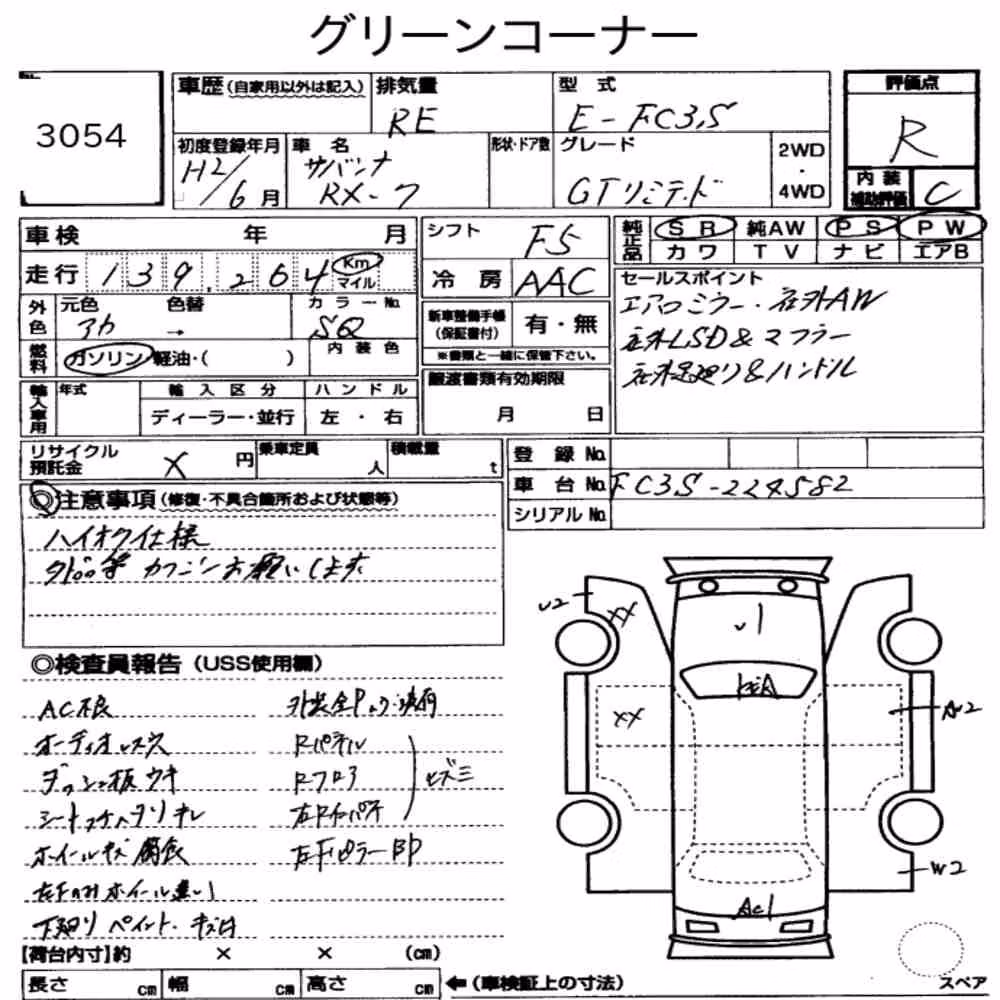 グリーンコーナー
3054
車歴(自家用以外は記入) 排気量 型式 評価点
RE E-FC3S R
初度登録年月 車名 形状・ドア数 グレード 2WD・4WD
H2/6月 サバンナ RX-7 GTリミテッド
内装補助評価 C
車検 年 月 シフト F5
純正品 SR 純AW PS PW
カワ TV ナビ エアB
走行 139,264 Km マイル
冷房 AAC
セールスポイント
エアロミラー・社外AW
社外LSD&マフラー
社外足廻り&ハンドル
外色 元色 色替 カラーNo.
アカ → SQ
新車整備手帳(保証書付) 有・無
※書類と一緒に保管下さい。
燃料 ガソリン 軽油・( ) 内装色
譲渡書類有効期限
月 日
輸入車用 年式 輸入区分 ハンドル
ディーラー・並行 左・右
リサイクル預託金 X 円 乗車定員 人 積載量 t
登録No.
車台No. FC3S-224582
シリアルNo.
◎注意事項(修復・不具合箇所および状態等)
ハイオク仕様
外品等カクニンお願いします
◎検査員報告(USS使用欄)
AC不良
オーディオレス
ダッシュ板ウキ
シート
ホイールキズ 腐食
左Fのみホイール違い
下廻り ペイント・キズ凹
Rパネル
Rフロア
ヒズミ
左FピラーBP
U2
XX
XX
A2
W2
【荷台内寸】約 × × (cm)
長さ cm 幅 cm 高さ cm ←(車検証上の寸法)
スペア